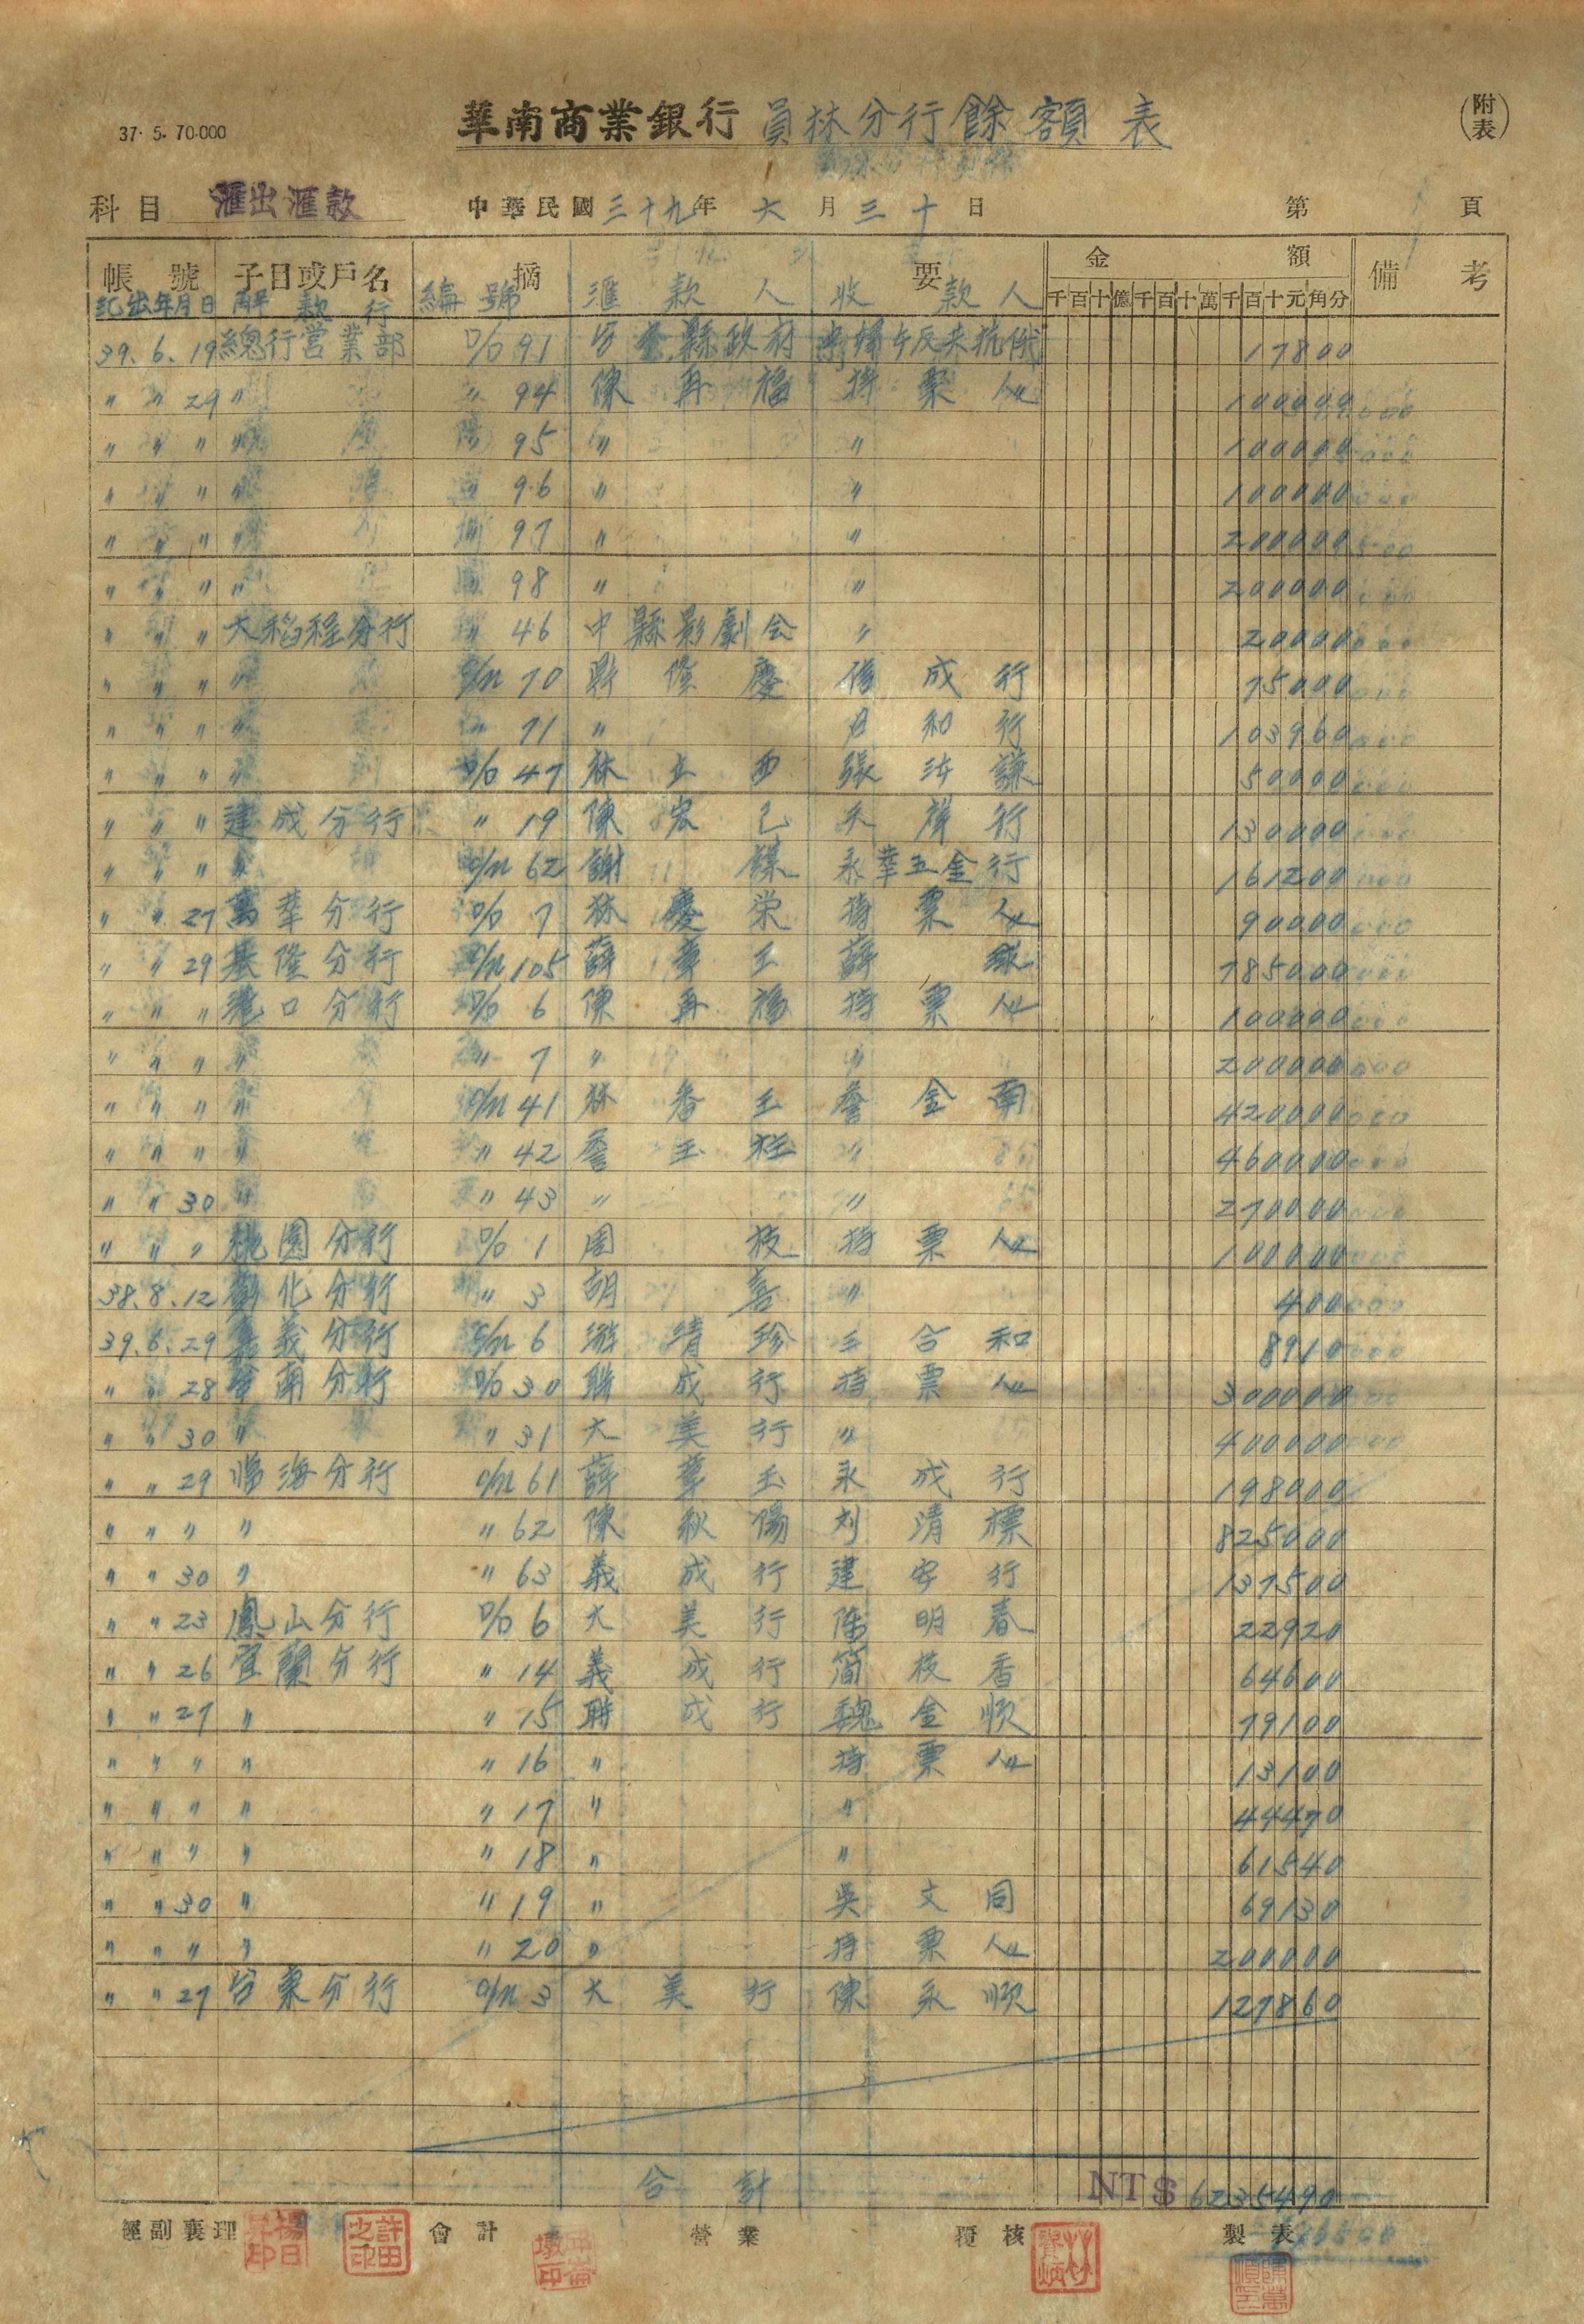 37·5·70·000
華南商業銀行員林分行餘額表
(附表)
科目 滙出滙款 中華民國三十九年六月三十日 第1頁
帳號 子目或戶名 摘要 金額 備考
記出年月日 解款行 編號 滙款人 收款人 千百十億千百十萬千百十元角分
39.6.19 總行営業部 D/D 91 台臺縣政府 婦女反共抗俄 17800
〃 〃 29 〃 〃 94 陳再福 持票人 100000
〃 〃 〃 〃 〃 95 〃 〃 100000
〃 〃 〃 〃 〃 96 〃 〃 100000
〃 〃 〃 〃 〃 97 〃 〃 200000
〃 〃 〃 〃 〃 98 〃 〃 200000
〃 〃 〃 大稻程分行 〃 46 中縣影劇会 〃 20000
〃 〃 〃 〃 D/M 70 鼎隆慶 俊成行 75000
〃 〃 〃 〃 〃 71 〃 日和行 103960
〃 〃 〃 〃 D/D 47 林立西 張沛謙 50000
〃 〃 〃 建成分行 〃 19 陳宏己 天祥行 130000
〃 〃 〃 〃 D/M 62 謝謀 永華五金行 161200
〃 〃 27 萬華分行 D/D 7 林慶栄 持票人 90000
〃 〃 29 基隆分行 D/M 105 薛章玉 薛 785000
〃 〃 〃 港口分行 D/D 6 陳再福 持票人 100000
〃 〃 〃 〃 〃 7 〃 〃 200000
〃 〃 〃 〃 D/M 41 林香玉 詹金南 420000
〃 〃 〃 〃 〃 42 詹玉柱 〃 460000
〃 〃 30 〃 〃 43 〃 〃 270000
〃 〃 〃 桃園分行 D/D 1 周枝 持票人 100000
38.8.12 彰化分行 〃 3 胡喜 〃 400
39.6.29 嘉義分行 D/M 6 游清珍 三合和 8910
〃 〃 28 台南分行 D/D 30 聯成行 持票人 300000
〃 〃 30 〃 〃 31 大美行 〃 400000
〃 〃 29 臨海分行 D/M 61 薛章玉 永成行 198000
〃 〃 〃 〃 〃 62 陳秋陽 刘清標 825000
〃 〃 30 〃 〃 63 義成行 建安行 137500
〃 〃 23 鳳山分行 D/D 6 大美行 陳明春 22920
〃 〃 26 宜蘭分行 〃 14 義成行 簡枝香 64600
〃 〃 27 〃 〃 15 聯成行 魏金順 79100
〃 〃 〃 〃 〃 16 〃 持票人 13100
〃 〃 〃 〃 〃 17 〃 〃 44470
〃 〃 〃 〃 〃 18 〃 〃 61540
〃 〃 30 〃 〃 19 〃 吳文同 69130
〃 〃 〃 〃 〃 20 〃 持票人 200000
〃 〃 27 台東分行 D/M 3 大美行 陳永順 127860
合計 NT$ 6235490
經副襄理 會計 營業 覆核 製表